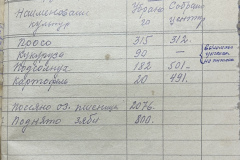 Наименование Убрано Собрано
культур га центнер
Просо 315 312
Кукуруза 90 —
Подсолнух 182 501
Картофель 20 491
Посеяно оз. пшеницы 2076.
Поднято зяби 800.